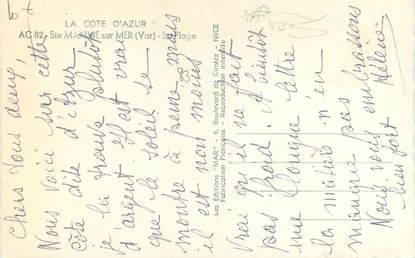 LA COTE D'AZUR
AC 82 - Ste MAXIME sur MER (Var) - La Plage
Les Editions "MAR" - 4, Boulevard de Cimiez - NICE
Fabrication Française - Reproduction interdite
Chers Vous deux,
Nous voici sur cette
côte dite d'azur
je la trouve plutôt
d'argent il est vrai
que le soleil se
montre à peine mais
il est non moins
vrai qu'il ne fait
pas froid. A bientôt
une longue lettre
la matière n'en
manque pas
Nous vous embrassons
bien fort